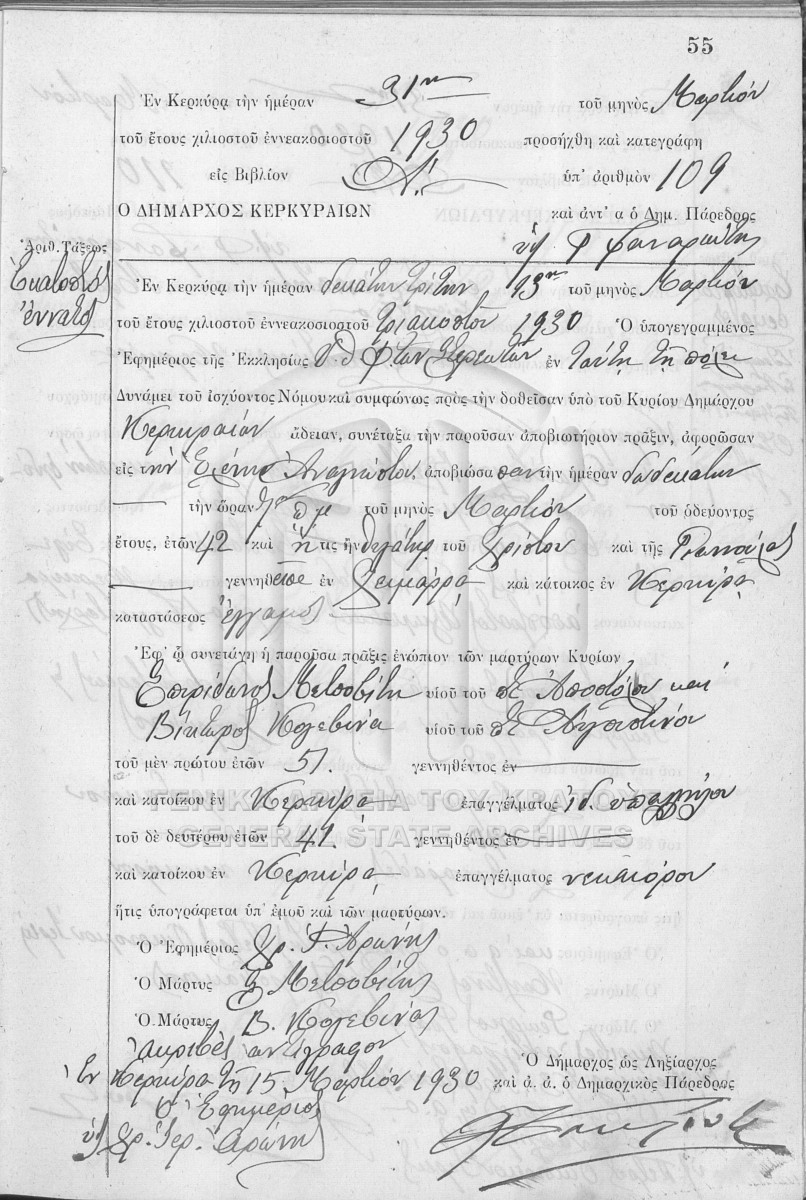 55
Ἐν Κερκύρᾳ τὴν ἡμέραν 31ην τοῦ μηνὸς Μαρτίου
τοῦ ἔτους χιλιοστοῦ ἐννεακοσιοστοῦ 1930 προσήχθη καὶ κατεγράφη
εἰς Βιβλίον Α΄. ὑπ' ἀριθμὸν 109
Ο ΔΗΜΑΡΧΟΣ ΚΕΡΚΥΡΑΙΩΝ καὶ ἀντ' α ὁ Δημ. Πάρεδρος
Ἀριθ. Τάξεως
Ἑκατοστὸς
ἔννατος
Ἐν Κερκύρᾳ τὴν ἡμέραν δεκάτην τρίτην 13ην τοῦ μηνὸς Μαρτίου
τοῦ ἔτους χιλιοστοῦ ἐννεακοσιοστοῦ τριακοστοῦ 1930 Ὁ ὑπογεγραμμένος
Ἐφημέριος τῆς Ἐκκλησίας ἐν ταύτῃ τῇ πόλει
Δυνάμει τοῦ ἰσχύοντος Νόμου καὶ συμφώνως πρὸς τὴν δοθεῖσαν ὑπὸ τοῦ Κυρίου Δημάρχου
Κερκυραίων ἄδειαν, συνέταξα τὴν παροῦσαν ἀποβιωτήριον πρᾶξιν, ἀφορῶσαν
εἰς τὴν Ἑλένην Ἀναγνώστου, ἀποβιώσασαν τὴν ἡμέραν δωδεκάτην
τὴν ὥραν 7 π μ τοῦ μηνὸς Μαρτίου τοῦ ὁδεύοντος
ἔτους, ἐτῶν 42 καὶ ἥτις ἦν θυγάτηρ τοῦ Χρίστου καὶ τῆς
γεννηθεῖσα ἐν Χειμάρρᾳ καὶ κάτοικος ἐν Κερκύρᾳ
καταστάσεως ἔγγαμος
Ἐφ' ᾧ συνετάχη ἡ παροῦσα πρᾶξις ἐνώπιον τῶν μαρτύρων Κυρίων
Σπυρίδωνος Μετσοβίτη υἱοῦ τοῦ ποτὲ Ἀποστόλου καὶ
Βίκτωρος Κολεβίνα υἱοῦ τοῦ ποτὲ Αὐγουστίνου
τοῦ μὲν πρώτου ἐτῶν 51. γεννηθέντος ἐν
καὶ κατοίκου ἐν Κερκύρᾳ ἐπαγγέλματος ἰδ. ὑπαλλήλου
ΓΕΝΙΚΑ ΑΡΧΕΙΑ ΤΟΥ ΚΡΑΤΟΥΣ
τοῦ δὲ δευτέρου ἐτῶν 41. γεννηθέντος ἐν
GENERAL STATE ARCHIVES
καὶ κατοίκου ἐν Κερκύρᾳ ἐπαγγέλματος νεωκόρου
ἥτις ὑπογράφεται ὑπ' ἐμοῦ καὶ τῶν μαρτύρων.
Ὁ Ἐφημέριος Γρ. Ἱ. Ἀρώνης
Ὁ Μάρτυς Σ. Μετσοβίτης
Ὁ Μάρτυς Β. Κολεβίνας
Ἀκριβὲς ἀντίγραφον
Ἐν Κερκύρᾳ τῇ 15 Μαρτίου 1930
Ὁ Ἐφημέριος
Γρ. Ἱερ. Ἀρώνης
Ὁ Δήμαρχος ὡς Ληξίαρχος
καὶ ἀ. ἀ. ὁ Δημαρχικὸς Πάρεδρος